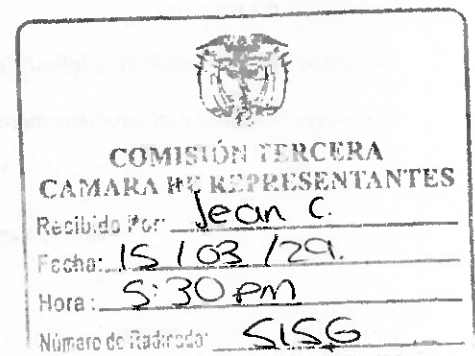 COMISIÓN TERCERA
CAMARA DE REPRESENTANTES
Recibido Por: Jean C.
Fecha: 15/03/29.
Hora: 5:30 pm
Número de Radicado: 5156